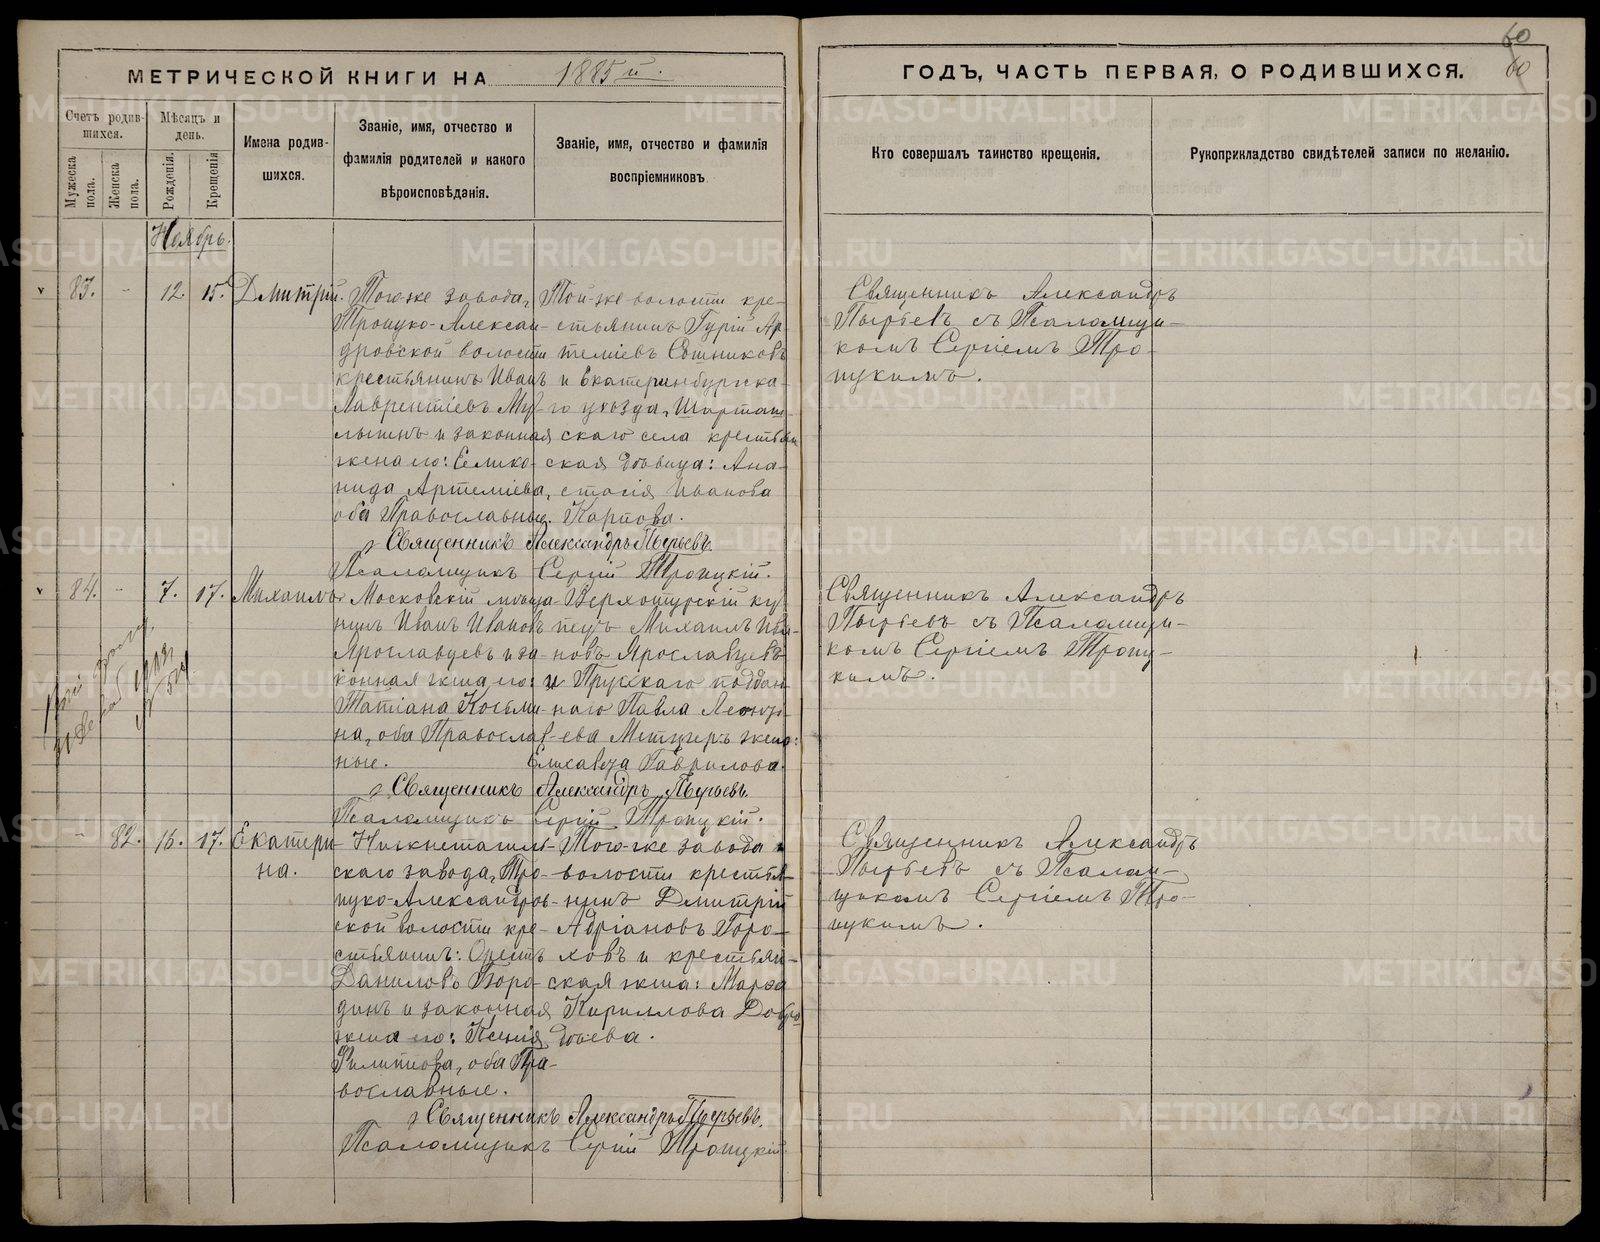 60
60
МЕТРИЧЕСКОЙ КНИГИ НА 1885й.
ГОДЪ, ЧАСТЬ ПЕРВАЯ, О РОДИВШИХСЯ.
Счетъ родив-
шихся.
Мѣсяцъ и
день.
Имена родив-
шихся.
Званіе, имя, отчество и
фамилія родителей и какого
вѣроисповѣданія.
Званіе, имя, отчество и фамилія
воспріемниковъ
Кто совершалъ таинство крещенія.
Рукоприкладство свидѣтелей записи по желанію.
Мужеска
пола.
Женска
пола.
Рожденія.
Крещенія
Ноябрь.
83. - 12. 15. Дмитрій.
Того-же завода,
Троицко-Алексан-
дровской волости
крестьянинъ Иванъ
Лаврентіевъ Му-
лышъ и законная
жена его:
нида Артеміева,
оба Православные.
Той-же волости кре-
стьянинъ Гурій Ар-
теміевъ Сотниковъ
и Екатеринбургска-
го уѣзда, Шарташ-
скаго села крестьян-
ская дѣвица: Ана-
стасія Иванова
Карпова.
Священникъ Александръ Пырьевъ
Псаломщикъ Сергій Троицкій.
Священникъ Александръ
Пырьевъ съ Псаломщи-
комъ Сергіемъ Тро-
ицкимъ.
84. - 7. 17. Михаилъ
Московскій мѣща-
нинъ Иванъ Ивановъ
Ярославцевъ и за-
конная жена его:
Татіана Косьми-
на, оба Православ-
ные.
Верхотурскій ку-
пецъ Михаилъ Ива-
новъ Ярославцевъ
и Прусскаго поддан-
наго Павла
жена:
Елисавета Гаврилова.
Священникъ Александръ Пырьевъ
Псаломщикъ Сергій Троицкій.
Священникъ Александръ
Пырьевъ съ Псаломщи-
комъ Сергіемъ Троиц-
кимъ.
- 82. 16. 17. Екатери-
на.
Нижнетагиль-
скаго завода, Тро-
ицко-Александров-
ской волости кре-
стьянинъ: Орестъ
Даниловъ Боро-
динъ и законная
жена его: Ксенія
Филиппова, оба Пра-
вославные.
Того-же завода и
волости крестья-
нинъ Дмитрій
Адріановъ Горо-
ховъ и крестьян-
ская жена:
Кириллова Добро-
дѣева.
Священникъ Александръ Пырьевъ.
Псаломщикъ Сергій Троицкій.
Священникъ Александръ
Пырьевъ съ Псалом-
щикомъ Сергіемъ Тро-
ицкимъ.
METRIKI.GASO-URAL.RU